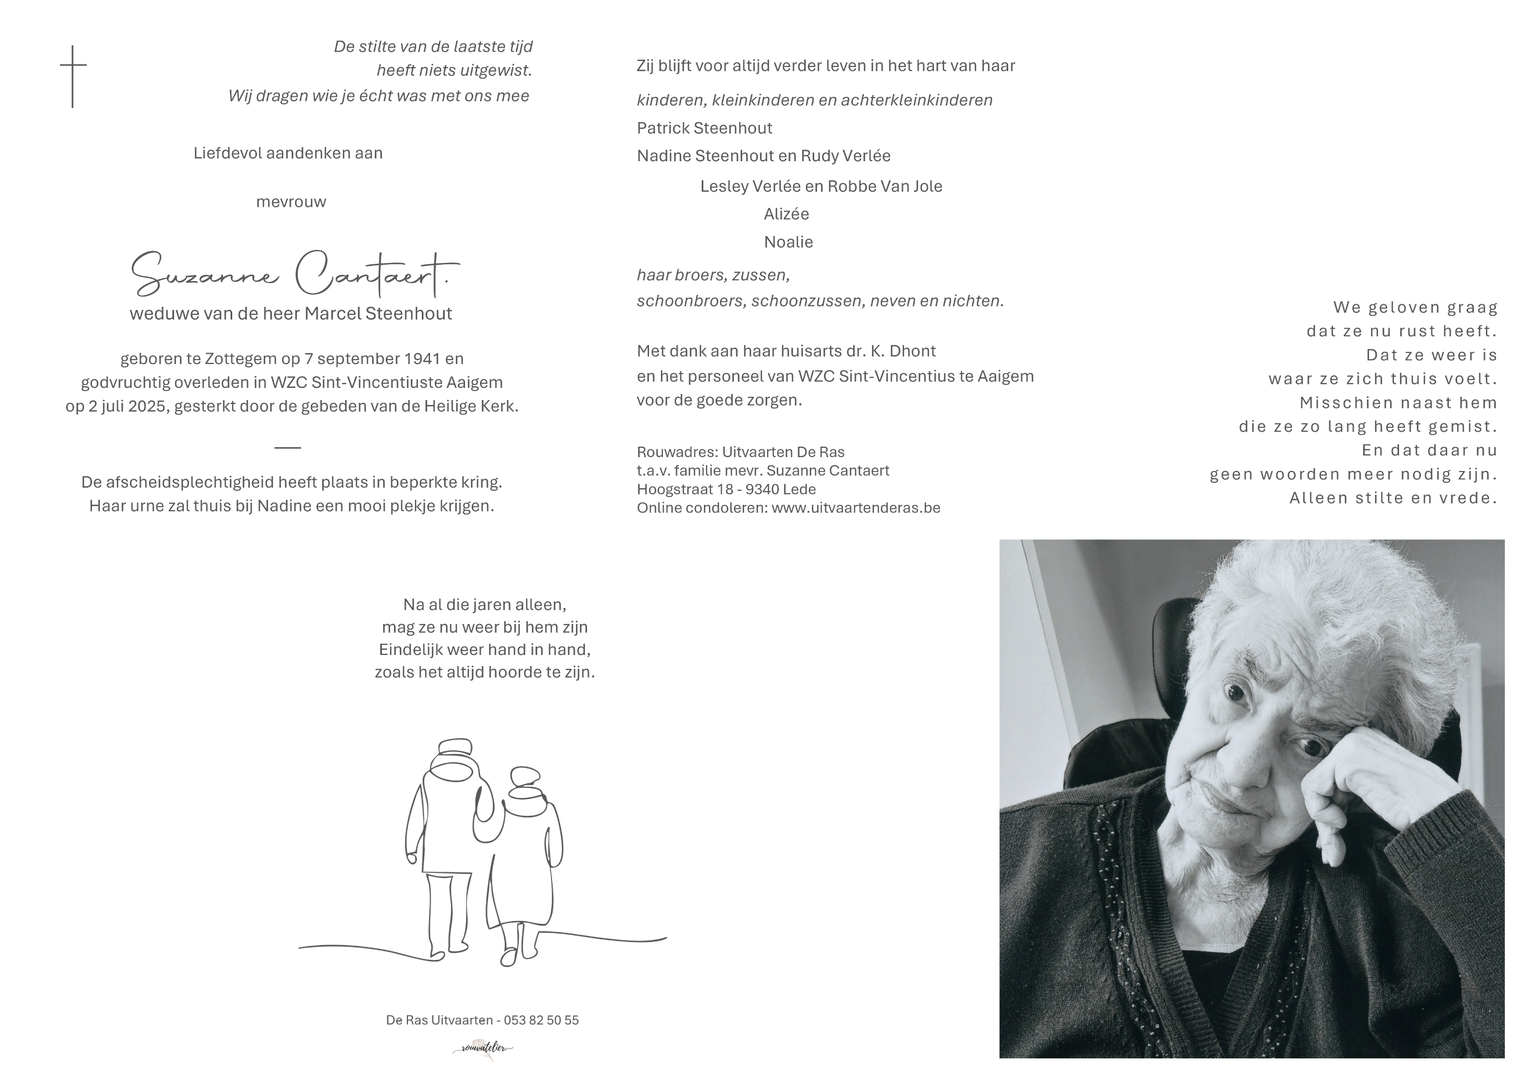 De stilte van de laatste tijd
heeft niets uitgewist.
Wij dragen wie je écht was met ons mee
Liefdevol aandenken aan
mevrouw
Suzanne Cantaert.
weduwe van de heer Marcel Steenhout
geboren te Zottegem op 7 september 1941 en
godvruchtig overleden in WZC Sint-Vincentiuste Aaigem
op 2 juli 2025, gesterkt door de gebeden van de Heilige Kerk.
De afscheidsplechtigheid heeft plaats in beperkte kring.
Haar urne zal thuis bij Nadine een mooi plekje krijgen.
Zij blijft voor altijd verder leven in het hart van haar
kinderen, kleinkinderen en achterkleinkinderen
Patrick Steenhout
Nadine Steenhout en Rudy Verlée
Lesley Verlée en Robbe Van Jole
Alizée
Noalie
haar broers, zussen,
schoonbroers, schoonzussen, neven en nichten.
Met dank aan haar huisarts dr. K. Dhont
en het personeel van WZC Sint-Vincentius te Aaigem
voor de goede zorgen.
Rouwadres: Uitvaarten De Ras
t.a.v. familie mevr. Suzanne Cantaert
Hoogstraat 18 - 9340 Lede
Online condoleren: www.uitvaartenderas.be
We geloven graag
dat ze nu rust heeft.
Dat ze weer is
waar ze zich thuis voelt.
Misschien naast hem
die ze zo lang heeft gemist.
En dat daar nu
geen woorden meer nodig zijn.
Alleen stilte en vrede.
Na al die jaren alleen,
mag ze nu weer bij hem zijn
Eindelijk weer hand in hand,
zoals het altijd hoorde te zijn.
De Ras Uitvaarten - 053 82 50 55
rouwatelier